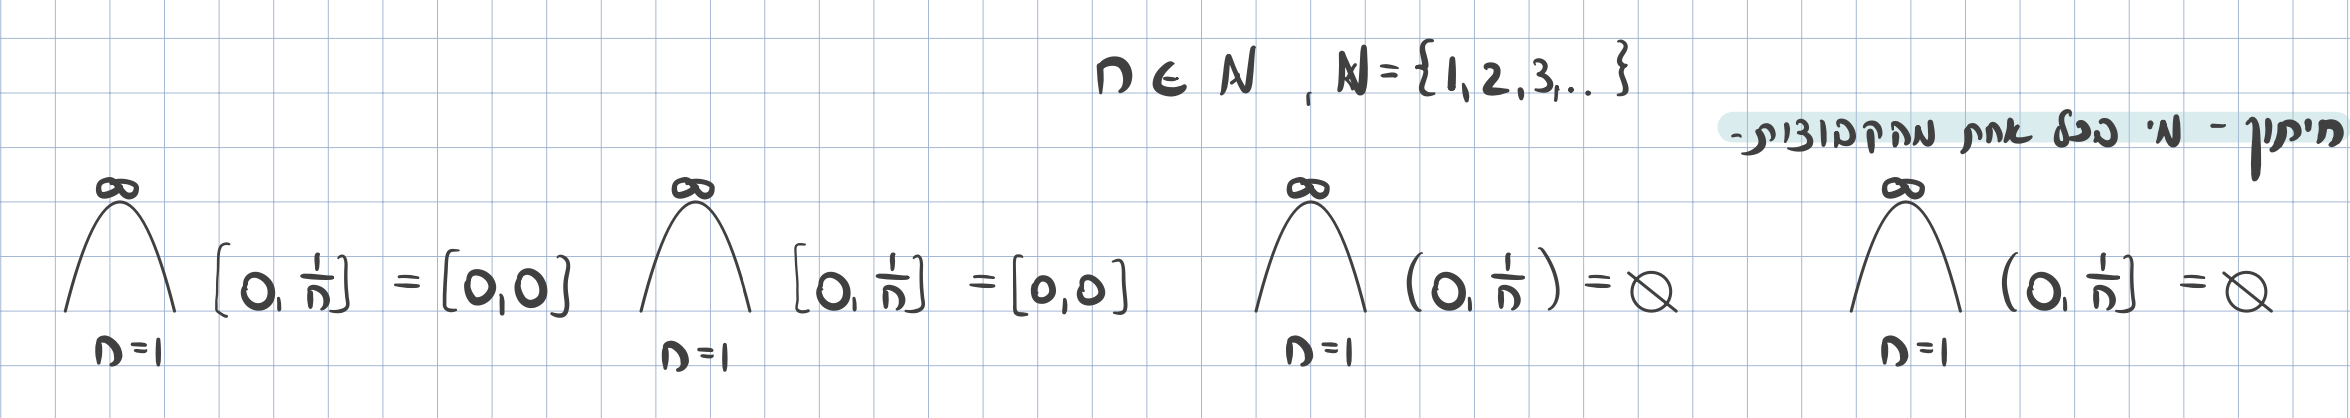 n ∈ ℕ , ℕ = {1, 2, 3, . . }
חיתוך - מי בכל אחת מהקבוצות -
⋂_{n=1}^{∞} [0, 1/n] = [0,0]   ⋂_{n=1}^{∞} [0, 1/n] = [0,0]   ⋂_{n=1}^{∞} (0, 1/n) = ∅   ⋂_{n=1}^{∞} (0, 1/n] = ∅